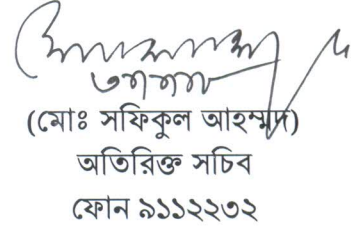 (মোঃ সফিকুল আহম্মদ)
অতিরিক্ত সচিব
ফোন ৯১১২২৩২